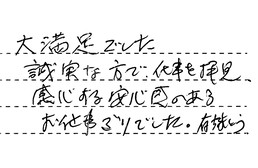 大満足でした
誠実な方で、仕事を拝見、
感心する安心感のある
お仕事ぶりでした。有難う